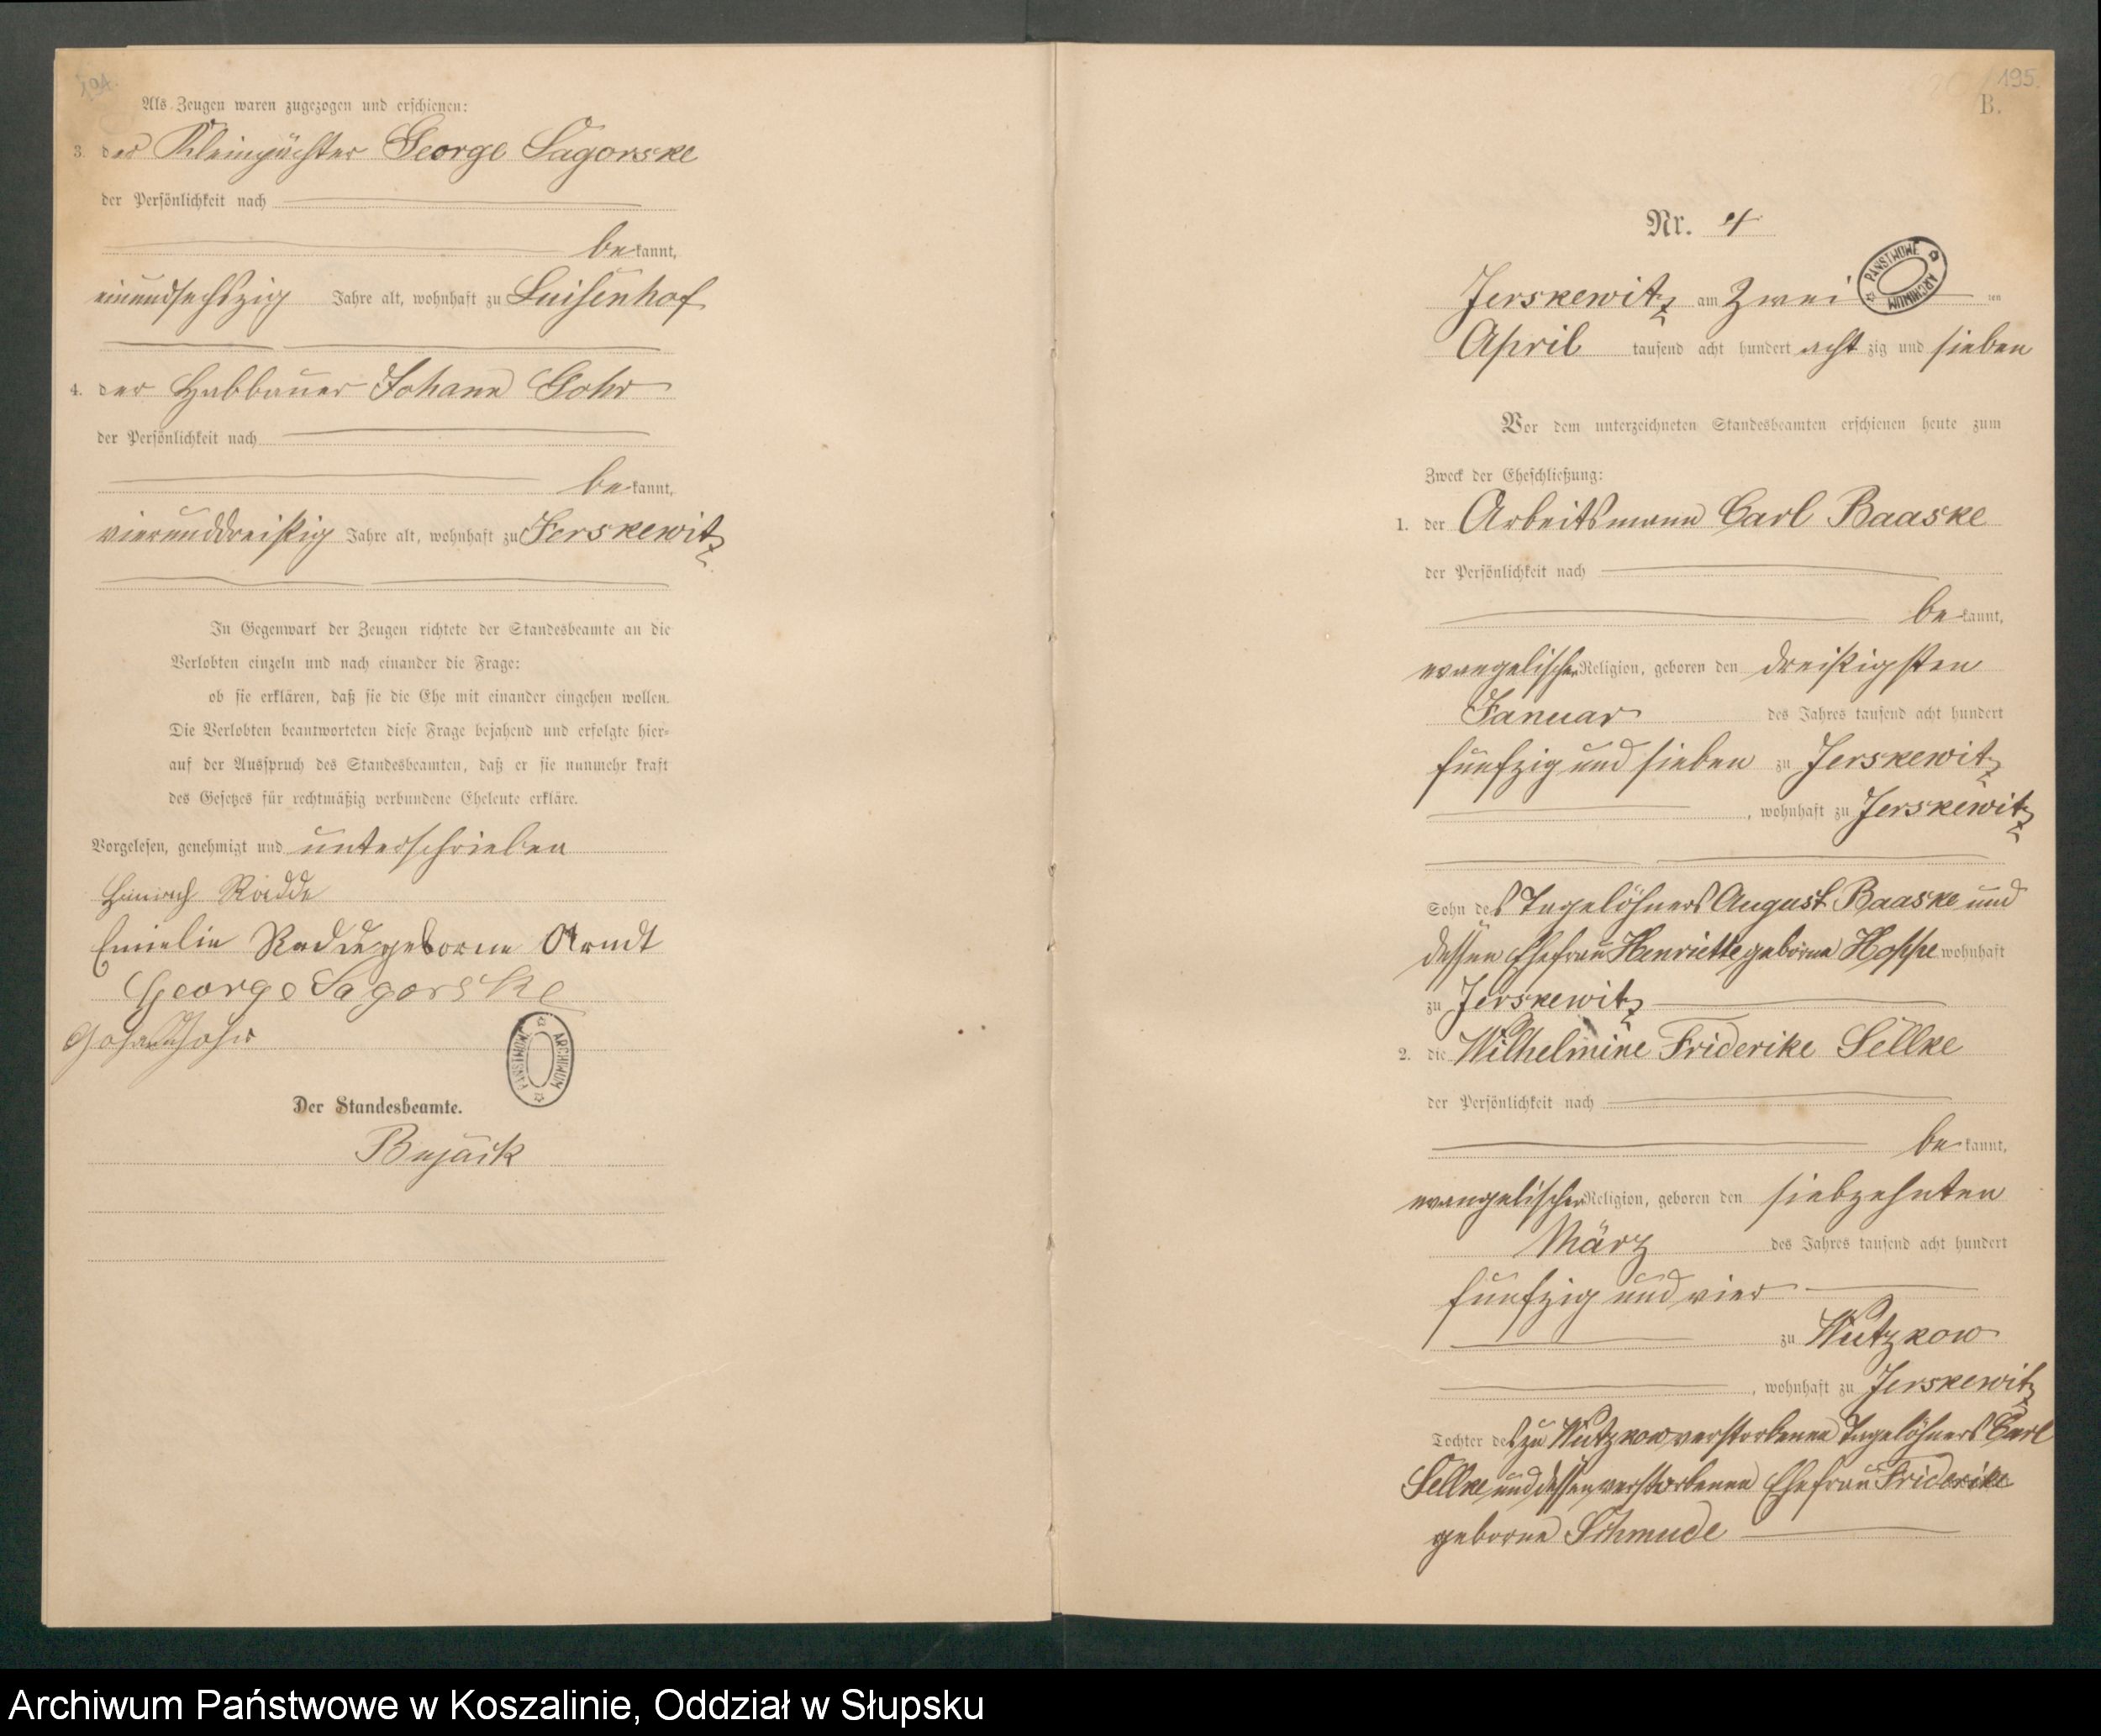 194.
Als Zeugen waren zugezogen und erschienen:
3. der Kleinpächter George Sagorske
der Persönlichkeit nach
bekannt,
einundsechszig Jahre alt, wohnhaft zu Luisenhof
4. der Halbbauer Johann Gohr
der Persönlichkeit nach
bekannt,
vierunddreißig Jahre alt, wohnhaft zu Jerskewitz
In Gegenwart der Zeugen richtete der Standesbeamte an die
Verlobten einzeln und nach einander die Frage:
ob sie erklären, daß sie die Ehe mit einander eingehen wollen.
Die Verlobten beantworteten diese Frage bejahend und erfolgte hier-
auf der Ausspruch des Standesbeamten, daß er sie nunmehr kraft
des Gesetzes für rechtmäßig verbundene Eheleute erkläre.
Vorgelesen, genehmigt und unterschrieben
Heinrich Radde
Emielie Radde geborne Arndt
George Sagorske
Johann Gohr
PAŃSTWOWE ARCHIWUM
Der Standesbeamte.
195.
B.
Nr. 4
PAŃSTWOWE ARCHIWUM
Jerskewitz am Zwei ten
April tausend acht hundert achtzig und sieben
Vor dem unterzeichneten Standesbeamten erschienen heute zum
Zweck der Eheschließung:
1. der Arbeitsmann Carl Baaske
der Persönlichkeit nach
bekannt,
evangelischer Religion, geboren den dreißigsten
Januar des Jahres tausend acht hundert
fünfzig und sieben zu Jerskewitz
, wohnhaft zu Jerskewitz
Sohn des Tagelöhners August Baaske und
dessen Ehefrau Henriette geborne Hoppe wohnhaft
zu Jerskewitz
2. die Wilhelmine Friderike Sellke
der Persönlichkeit nach
bekannt,
evangelischer Religion, geboren den siebzehnten
März des Jahres tausend acht hundert
fünfzig und vier
zu Wutzkow
, wohnhaft zu Jerskewitz
Tochter des zu Wutzkow verstorbenen Tagelöhners Carl
Sellke und dessen verstorbenen Ehefrau Friderike
geborne Schmude
Archiwum Państwowe w Koszalinie, Oddział w Słupsku